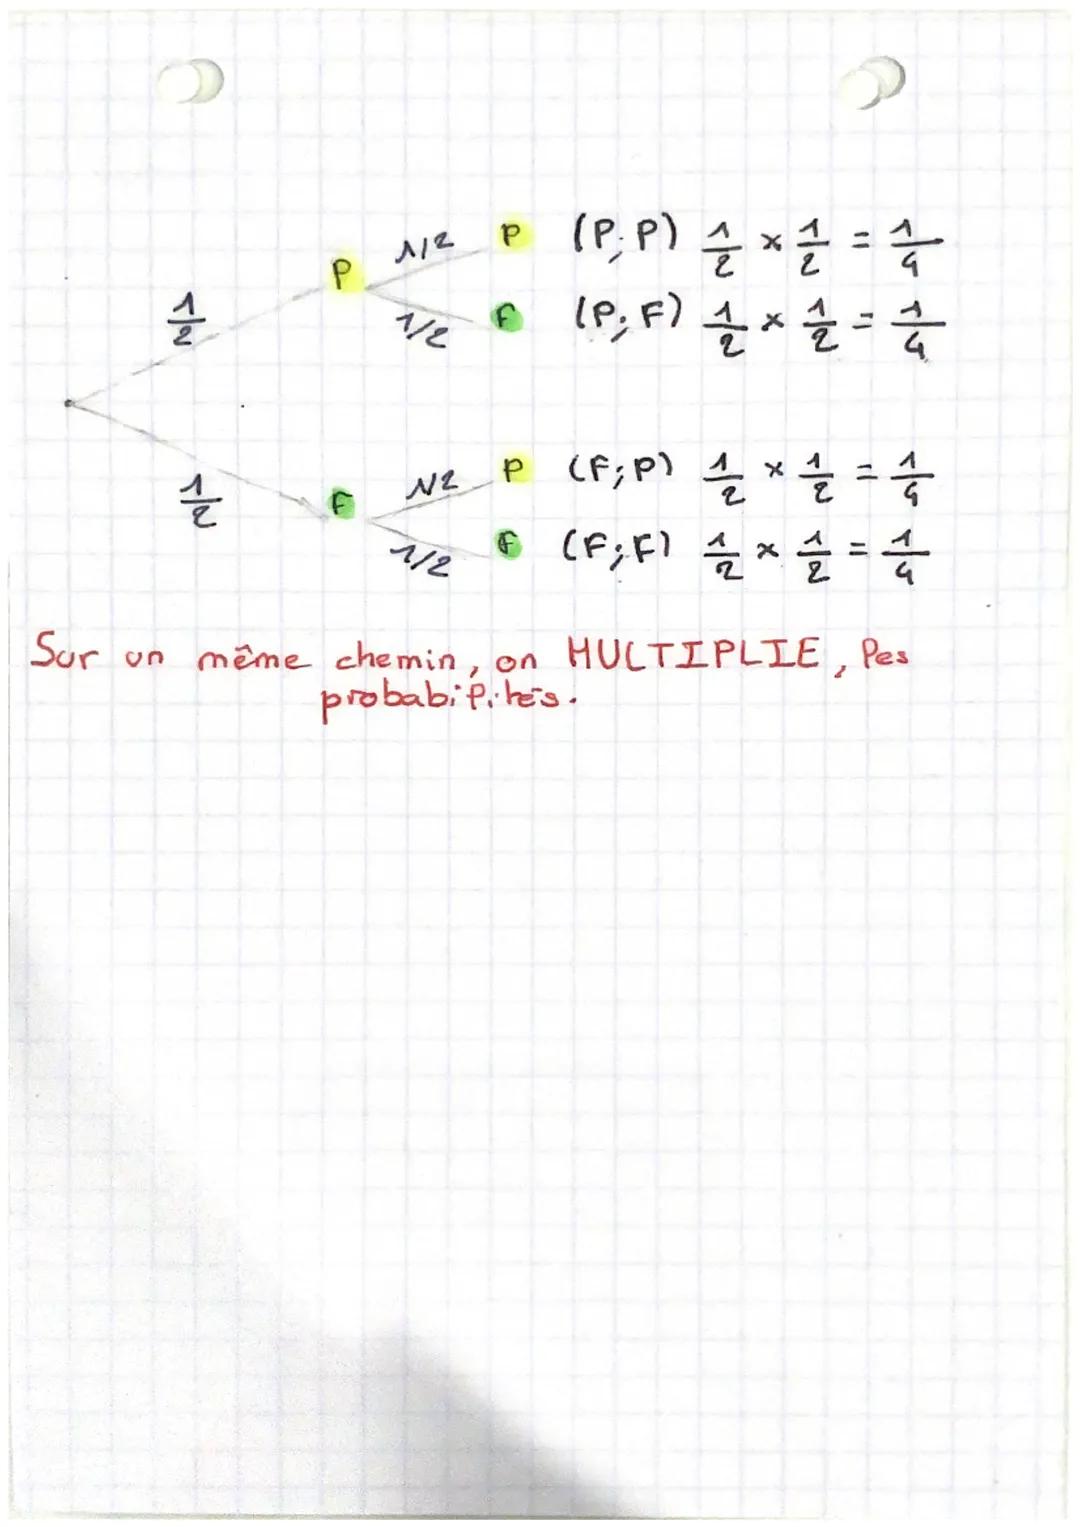 1/2 P 1/2 P (P;P) 1/2 × 1/2 = 1/4
1/2 F (P;F) 1/2 × 1/2 = 1/4
1/2 F 1/2 P (F;P) 1/2 × 1/2 = 1/4
1/2 F (F;F) 1/2 × 1/2 = 1/4
Sur un même chemin, on MULTIPLIE, les
probabilités.